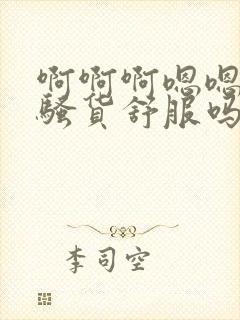 啊啊啊嗯嗯
骚货舒服吗
李司空